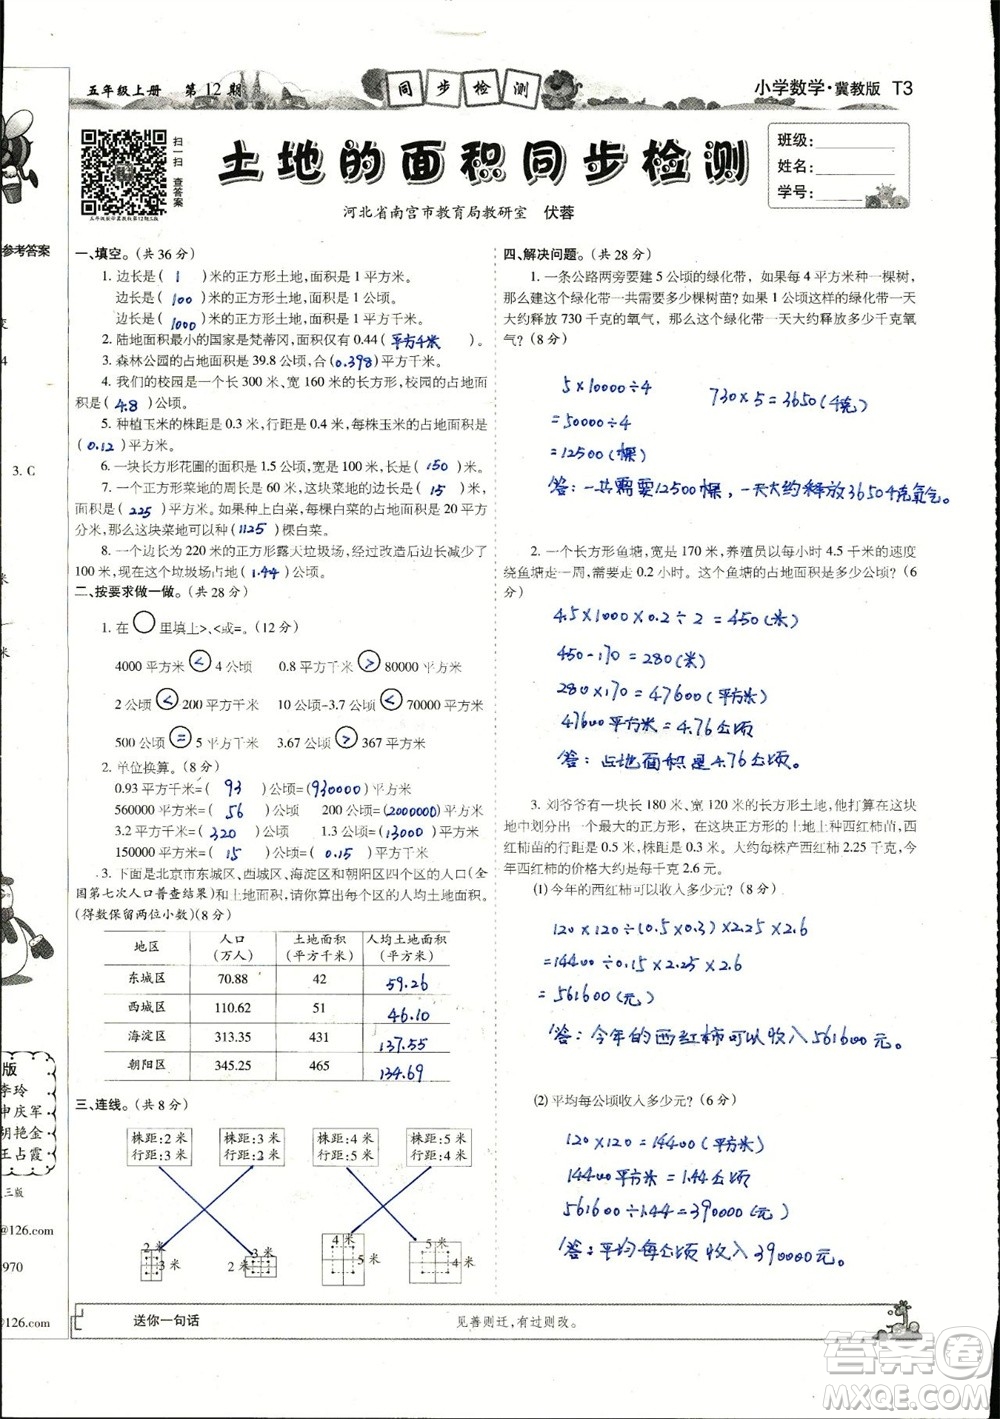 五年级上册 第12期
同步检测
小学数学·冀教版 T3
扫一扫 查答案
土地的面积同步检测
班级:
姓名:
学号:
河北省南宫市教育局教研室 伏蓉
参考答案
3. C
一、填空。(共 36 分)
1. 边长是( 1 )米的正方形土地,面积是 1 平方米。
边长是( 100 )米的正方形土地,面积是 1 公顷。
边长是( 1000 )米的正方形土地,面积是 1 平方千米。
2. 陆地面积最小的国家是梵蒂冈。面积仅有 0.44( 平方千米 )。
3. 森林公园的占地面积是 39.8 公顷,合( 0.398 )平方千米。
4. 我们的校园是一个长 300 米、宽 160 米的长方形,校园的占地面
积是( 4.8 )公顷。
5. 种植玉米的株距是 0.3 米,行距是 0.4 米,每株玉米的占地面积是
( 0.12 )平方米。
6. 一块长方形花圃的面积是 1.5 公顷,宽是 100 米,长是( 150 )米。
7. 一个正方形菜地的周长是 60 米,这块菜地的边长是( 15 )米,
面积是( 225 )平方米。如果种上白菜,每棵白菜的占地面积是 20 平方
分米,那么这块菜地可以种( 1125 )棵白菜。
8. 一个边长为 220 米的正方形露天垃圾场,经过改造后边长减少了
100 米,现在这个垃圾场占地( 1.44 )公顷。
二、按要求做一做。(共 28 分)
1. 在 ○ 里填上>、<或=。(12 分)
4000 平方米 < 4 公顷 0.8 平方千米 > 80000 平方米
2 公顷 < 200 平方千米 10 公顷-3.7 公顷 < 70000 平方米
500 公顷 = 5 平方千米 3.67 公顷 > 367 平方米
2. 单位换算。(8 分)
0.93 平方千米=( 93 )公顷=( 930000 )平方米
560000 平方米=( 56 )公顷 200 公顷=( 2000000 )平方米
3.2 平方千米=( 320 )公顷 1.3 公顷=( 13000 )平方米
150000 平方米=( 15 )公顷=( 0.15 )平方千米
3. 下面是北京市东城区、西城区、海淀区和朝阳区四个区的人口(全
国第七次人口普查结果)和土地面积,请你算出每个区的人均土地面积。
(得数保留两位小数)(8 分)
地区 人口(万人) 土地面积(平方千米) 人均土地面积(平方米)
东城区 70.88 42 59.26
西城区 110.62 51 46.10
海淀区 313.35 431 137.55
朝阳区 345.25 465 134.69
三、连线。(共 8 分)
株距:2 米 株距:3 米 株距:4 米 株距:5 米
行距:3 米 行距:2 米 行距:5 米 行距:4 米
2 米 3 米 4 米 5 米
3 米 2 米 5 米 4 米
四、解决问题。(共 28 分)
1. 一条公路两旁要建 5 公顷的绿化带,如果每 4 平方米种一棵树,
那么建这个绿化带一共需要多少棵树苗?如果 1 公顷这样的绿化带一天
大约释放 730 千克的氧气,那么这个绿化带一天大约释放多少千克氧
气?(8 分)
5×10000÷4 730×5=3650(千克)
=50000÷4
=12500(棵)
答:一共需要12500棵,一天大约释放3650千克氧气。
2. 一个长方形鱼塘,宽是 170 米,养殖员以每小时 4.5 千米的速度
绕鱼塘走一周,需走 0.2 小时。这个鱼塘的占地面积是多少公顷?(6
分)
4.5×1000×0.2÷2=450(米)
450-170=280(米)
280×170=47600(平方米)
47600平方米=4.76公顷
答:占地面积是4.76公顷
3. 刘爷爷有一块长 180 米、宽 120 米的长方形土地,他打算在这块
地中划分出一个最大的正方形,在正方形的土地上种西红柿苗,西
红柿苗的行距是 0.5 米,株距是 0.3 米。大约每株产西红柿 2.25 千克,今
年西红柿的价格大约是每千克 2.6 元。
(1)今年的西红柿可以收入多少元?(8 分)
120×120÷(0.5×0.3)×2.25×2.6
=14400÷0.15×2.25×2.6
=561600(元)
答:今年的西红柿可以收入561600元。
(2)平均每公顷收入多少元?(6 分)
120×120=14400(平方米)
14400平方米=1.44公顷
561600÷1.44=390000(元)
答:平均每公顷收入390000元。
送你一句话 见善则迁,有过则改。
版
李玲
申庆军
胡艳金
王占霞
三版
@126.com
970
@126.com
答案圈
MXQE.COM